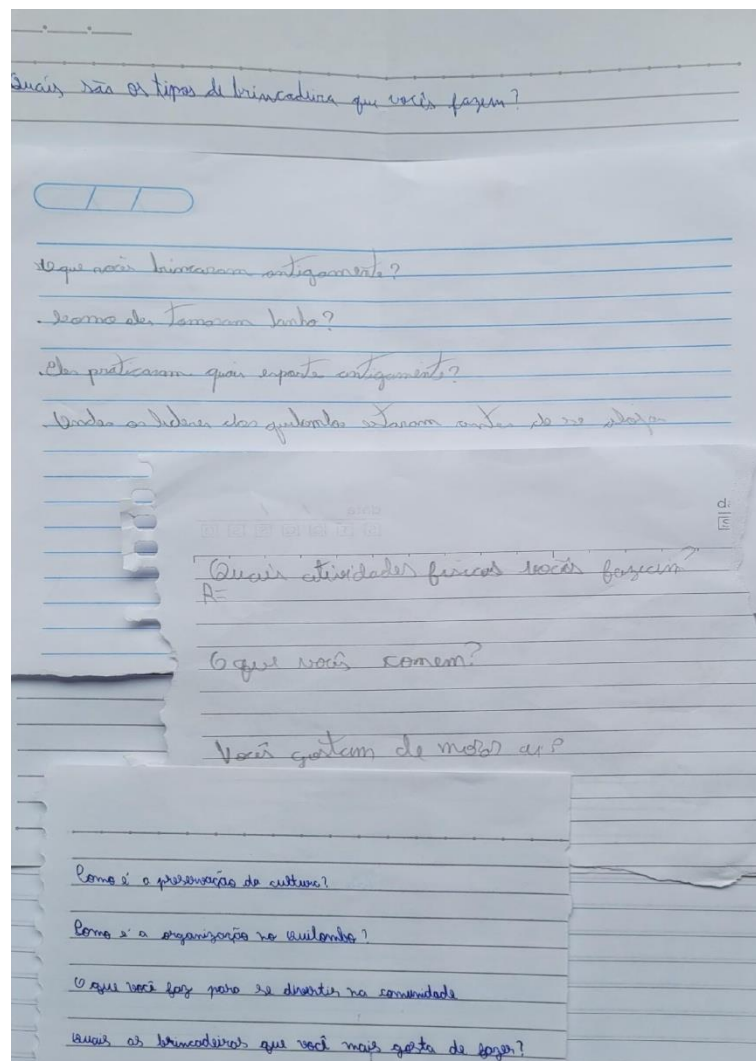 Quais são os tipos de brincadeira que vocês fazem?
De que vocês brincavam antigamente?
. Como eles tomavam banho?
. Eles praticavam quais esporte antigamente?
. Ondes os lideres dos quilombos estavam antes de se
Quais atividades fisicas vocês fazem?
R=
O que vocês comem?
Vocês gostam de morar aí?
Como é a preservação da cultura?
Como é a organização no Quilombo?
O que você faz para se divertir na comunidade
Quais as brincadeiras que você mais gosta de fazer?